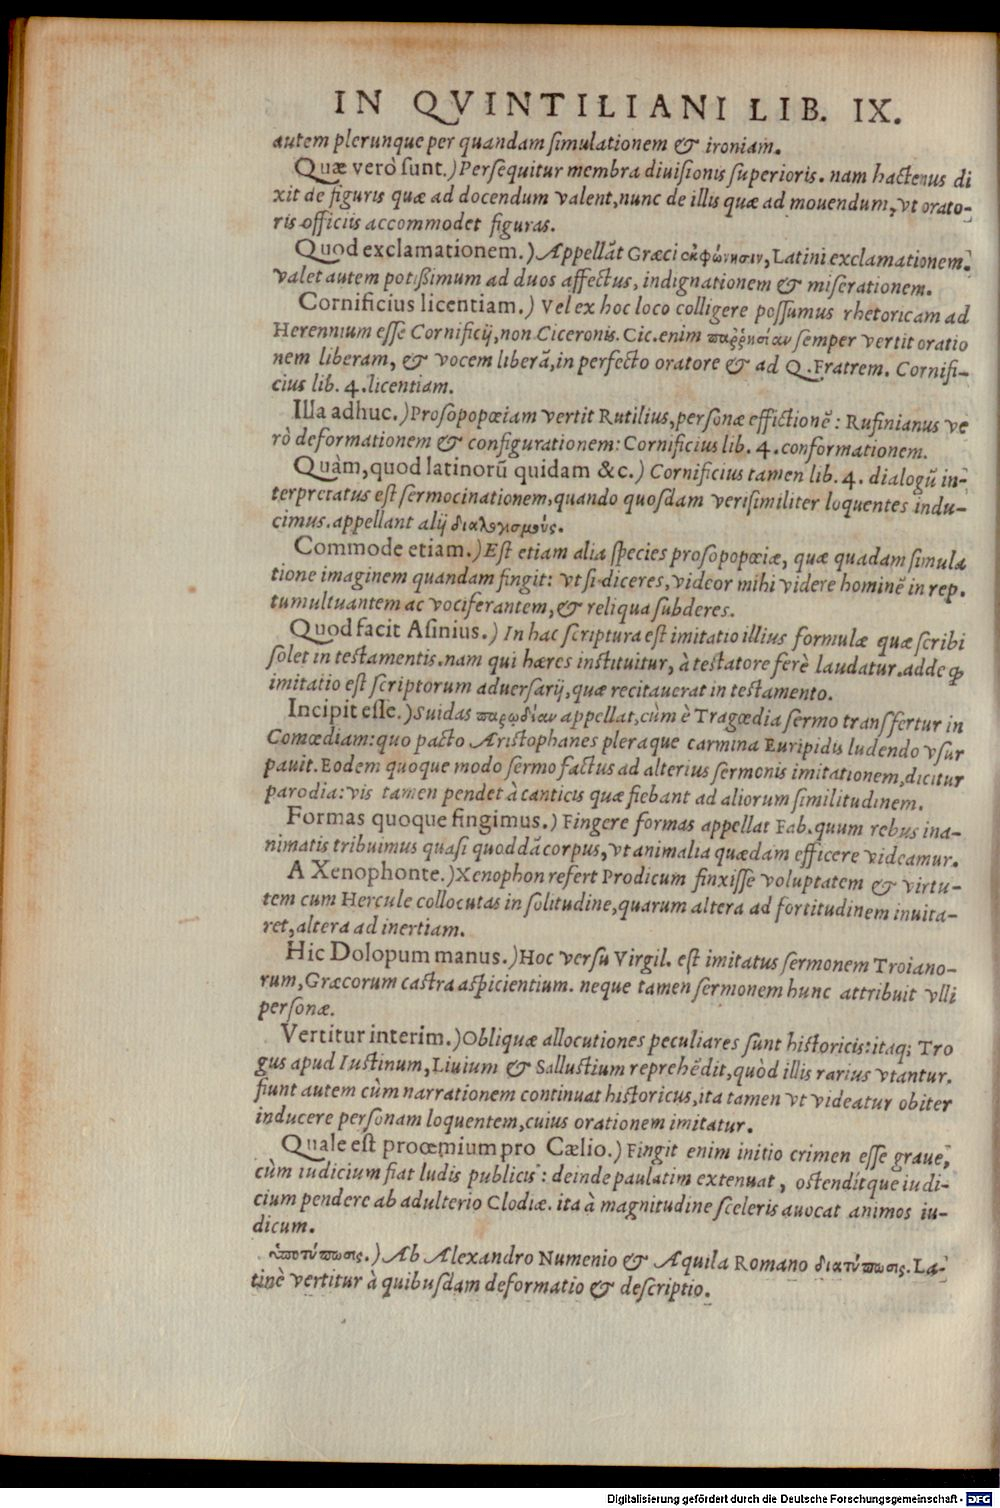 IN QVINTILIANI LIB. IX.
autem plerunque per quandam ſimulationem & ironiam.
Quæ verò ſunt.) Perſequitur membra diuiſionis ſuperioris. nam hactenus di
xit de figuris quæ ad docendum valent, nunc de illis quæ ad mouendum, vt orato-
ris officiis accommodet figuras.
Quod exclamationem.) Appellãt Græci ἐκφώνησιν, Latini exclamationem.
valet autem potiſsimum ad duos affectus, indignationem & miſerationem.
Cornificius licentiam.) Vel ex hoc loco colligere poſſumus rhetoricam ad
Herennium eſſe Cornificij, non Ciceronis. Cic. enim παῤῥησίαν ſemper vertit oratio
nem liberam, & vocem liberã, in perfecto oratore & ad Q. Fratrem. Cornifi-
cius lib. 4. licentiam.
Illa adhuc.) Proſopopœiam vertit Rutilius, perſonæ effictionẽ: Rufinianus ve
rò deformationem & configurationem: Cornificius lib. 4. conformationem.
Quàm, quod latinorũ quidam &c.) Cornificius tamen lib. 4. dialogũ in-
terpretatus eſt ſermocinationem, quando quoſdam veriſimiliter loquentes indu-
cimus. appellant alij διαλογισμούς.
Commode etiam.) Eſt etiam alia ſpecies proſopopœiæ, quæ quadam ſimula
tione imaginem quandam fingit: vt ſi diceres, videor mihi videre hominẽ in rep.
tumultuantem ac vociferantem, & reliqua ſubderes.
Quod facit Aſinius.) In hac ſcriptura eſt imitatio illius formulæ quæ ſcribi
ſolet in teſtamentis. nam qui hæres inſtituitur, à teſtatore ferè laudatur. adde ꝙ
imitatio eſt ſcriptorum aduerſarij, quæ recitauerat in teſtamento.
Incipit eſſe.) Suidas παρῳδίαν appellat, cùm è Tragœdia ſermo transfertur in
Comœdiam: quo pacto Ariſtophanes pleraque carmina Euripidis ludendo vſur
pauit. Eodem quoque modo ſermo factus ad alterius ſermonis imitationem, dicitur
parodia: vis tamen pendet à canticis quæ fiebant ad aliorum ſimilitudinem.
Formas quoque fingimus.) Fingere formas appellat Fab. quum rebus ina-
nimatis tribuimus quaſi quoddã corpus, vt animalia quædam efficere videamur.
A Xenophonte.) Xenophon refert Prodicum finxiſſe voluptatem & virtu-
tem cum Hercule collocutas in ſolitudine, quarum altera ad fortitudinem inuita-
ret, altera ad inertiam.
Hic Dolopum manus.) Hoc verſu Virgil. eſt imitatus ſermonem Troiano-
rum, Græcorum caſtra aſpicientium. neque tamen ſermonem hunc attribuit vlli
perſonæ.
Vertitur interim.) Obliquæ allocutiones peculiares ſunt hiſtoricis: itaq; Tro
gus apud Iuſtinum, Liuium & Salluſtium reprehẽdit, quòd illis rarius vtantur.
fiunt autem cùm narrationem continuat hiſtoricus, ita tamen vt videatur obiter
inducere perſonam loquentem, cuius orationem imitatur.
Quale eſt procœmium pro Cælio.) Fingit enim initio crimen eſſe graue,
cùm iudicium fiat ludis publicis: deinde paulatim extenuat, oſtendítque iudi-
cium pendere ab adulterio Clodiæ. ita à magnitudine ſceleris auocat animos iu-
dicum.
ὑποτύπωσις.) Ab Alexandro Numenio & Aquila Romano διατύπωσις. La-
tinè vertitur à quibuſdam deformatio & deſcriptio.
Digitalisierung gefördert durch die Deutsche Forschungsgemeinschaft - DFG